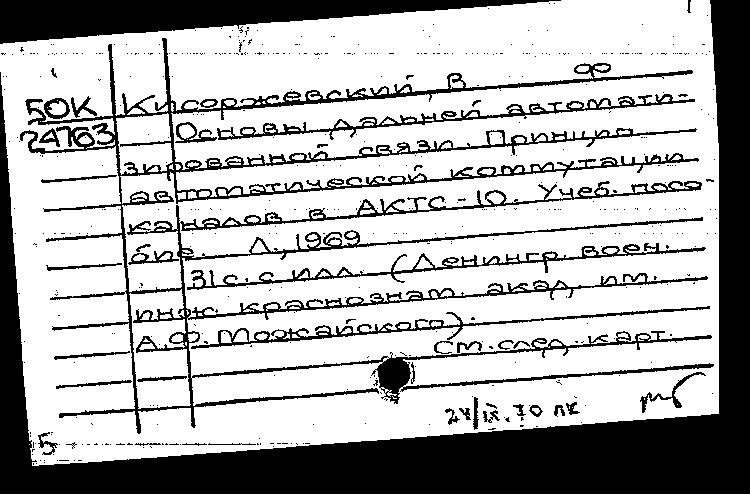 ФО
50К Кисоржевский, В
24763 Основы дальней автомати-
зированной связи. Принцип
автоматической коммутации
каналов в АКТС-10. Учеб. посо-
бие. Л., 1969
31 с. с илл. (Ленингр. воен.
инж. краснознам. акад. им.
А.Ф. Можайского).
См. след. карт.
24/IX.70 лк
5